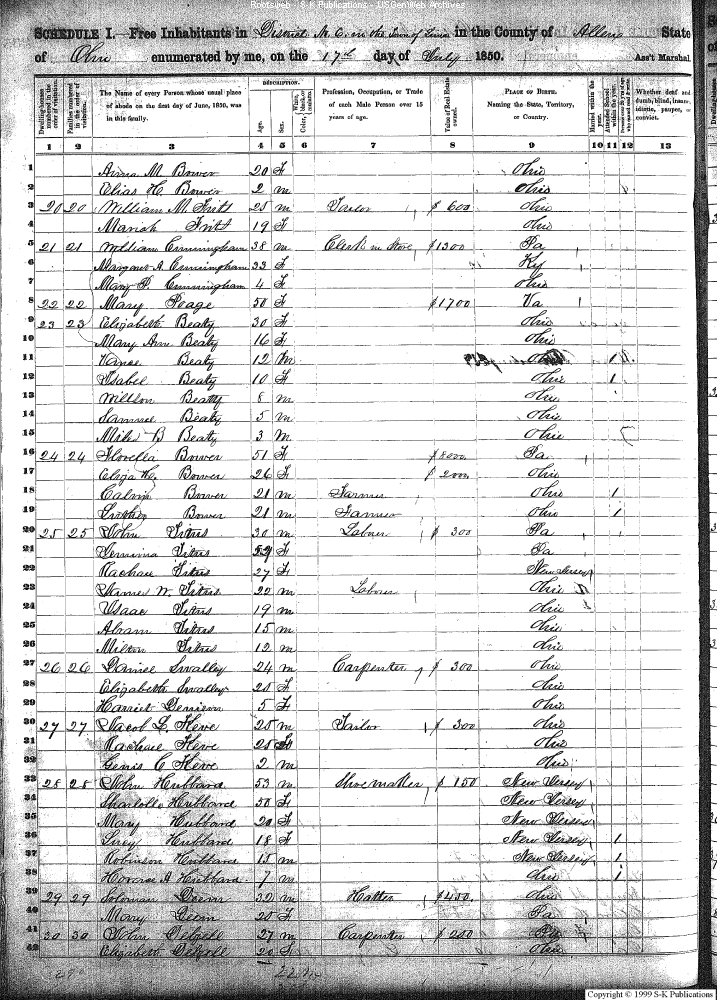 Rootsweb - S-K Publications - USGenWeb Archives
SCHEDULE I.—Free Inhabitants in District No. C. in the Town of Lima in the County of Allen State
of Ohio enumerated by me, on the 17th day of July 1850. Ass't Marshal
Dwelling-houses numbered in the order of visitation. Families numbered in the order of visitation. The Name of every Person whose usual place of abode on the first day of June, 1850, was in this family. DESCRIPTION. Age. Sex. Color, White, black, or mulatto. Profession, Occupation, or Trade of each Male Person over 15 years of age. Value of Real Estate owned. PLACE OF BIRTH. Naming the State, Territory, or Country. Married within the year. Attended School within the year. Whether deaf and dumb, blind, insane, idiotic, pauper, or convict.
1 2 3 4 5 6 7 8 9 10 11 12 13
1 Anna M. Bower 20 F Ohio
2 Elias H. Bower 2 m Ohio
3 20 20 William M. 25 m Tailor $ 600 Ohio
4 Mariah 19 F Ohio
5 21 21 William Cunningham 38 m Clerk in Store $1300 Pa
6 Margaret A. Cunningham 33 F Ky
7 Mary Cunningham 4 F Ohio
8 22 22 Mary Peage 50 F $1700 Va
9 23 23 Elizabeth Beaty 30 F Ohio
10 Mary Ann Beaty 16 F Ohio
11 Beaty 12 m Ohio 1
12 Isabel Beaty 10 F Ohio 1
13 Willson Beatty 8 m Ohio
14 Samuel Beaty 5 m Ohio
15 Miles B Beaty 3 m Ohio
16 24 24 Bower 51 F $8000 Pa
17 Eliza Bower 26 F $ 2000 Ohio
18 Calvin Bower 21 m Farmer Ohio 1
19 Luther Bower 21 m Farmer Ohio 1
20 25 25 John Titus 30 m Laborer $ 300 Pa
21 Jemima Titus F Pa
22 Rachael Titus 27 F New Jersey
23 James W. Titus 22 m Laborer Ohio
24 Isaac Titus 19 m Ohio
25 Abram Titus 15 m Ohio
26 Milton Titus 12 m Ohio
27 26 26 Daniel Swalley 24 m Carpenter $ 300 Ohio
28 Elizabeth Swalley F Ohio
29 Harriet 5 F Ohio
30 27 27 Jacob L. 25 m Tailor $ 300 Ohio
31 Rachael 25 F Ohio
32 C 2 m Ohio
33 28 28 John Hubbard 53 m Shoe maker $ 150 New Jersey
34 Sharlotte Hubbard 50 F New Jersey
35 Mary Hubbard 20 F New Jersey
36 Hubbard 18 F New Jersey 1
37 Robinson Hubbard 15 m New Jersey 1
38 Horace A Hubbard 7 m Ohio 1
39 29 29 Soloman 32 m Hatter $400 Ohio
40 Mary 20 F Pa
41 30 30 John 27 m Carpenter $ 200
42 Elizabeth 20 F Ohio
Copyright © 1999 S-K Publications